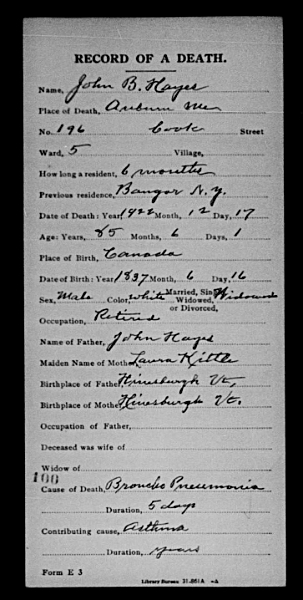 RECORD OF A DEATH.
Name, John B. Hayes
Place of Death, Auburn Me
No. 196 Cook Street
Ward, 5 Village,
How long a resident, 6 months
Previous residence, Bangor N.Y.
Date of Death: Year, 1922 Month, 12 Day, 17
Age: Years, 85 Months, 6 Days, 1
Place of Birth, Canada
Date of Birth: Year 1837 Month, 6 Day, 16
Sex, Male Color, white Married, Single, Widowed, or Divorced, Widowed
Occupation, Retired
Name of Father, John Hayes
Maiden Name of Mother Laura Kittle
Birthplace of Father, Hinesburgh Vt,
Birthplace of Mother, Hinesburgh Vt.
Occupation of Father,
Deceased was wife of
Widow of
100
Cause of Death, Broncho Pneumonia
Duration, 5 days
Contributing cause, Asthma
Duration, years
Form E 3
Library Bureau 31-851A